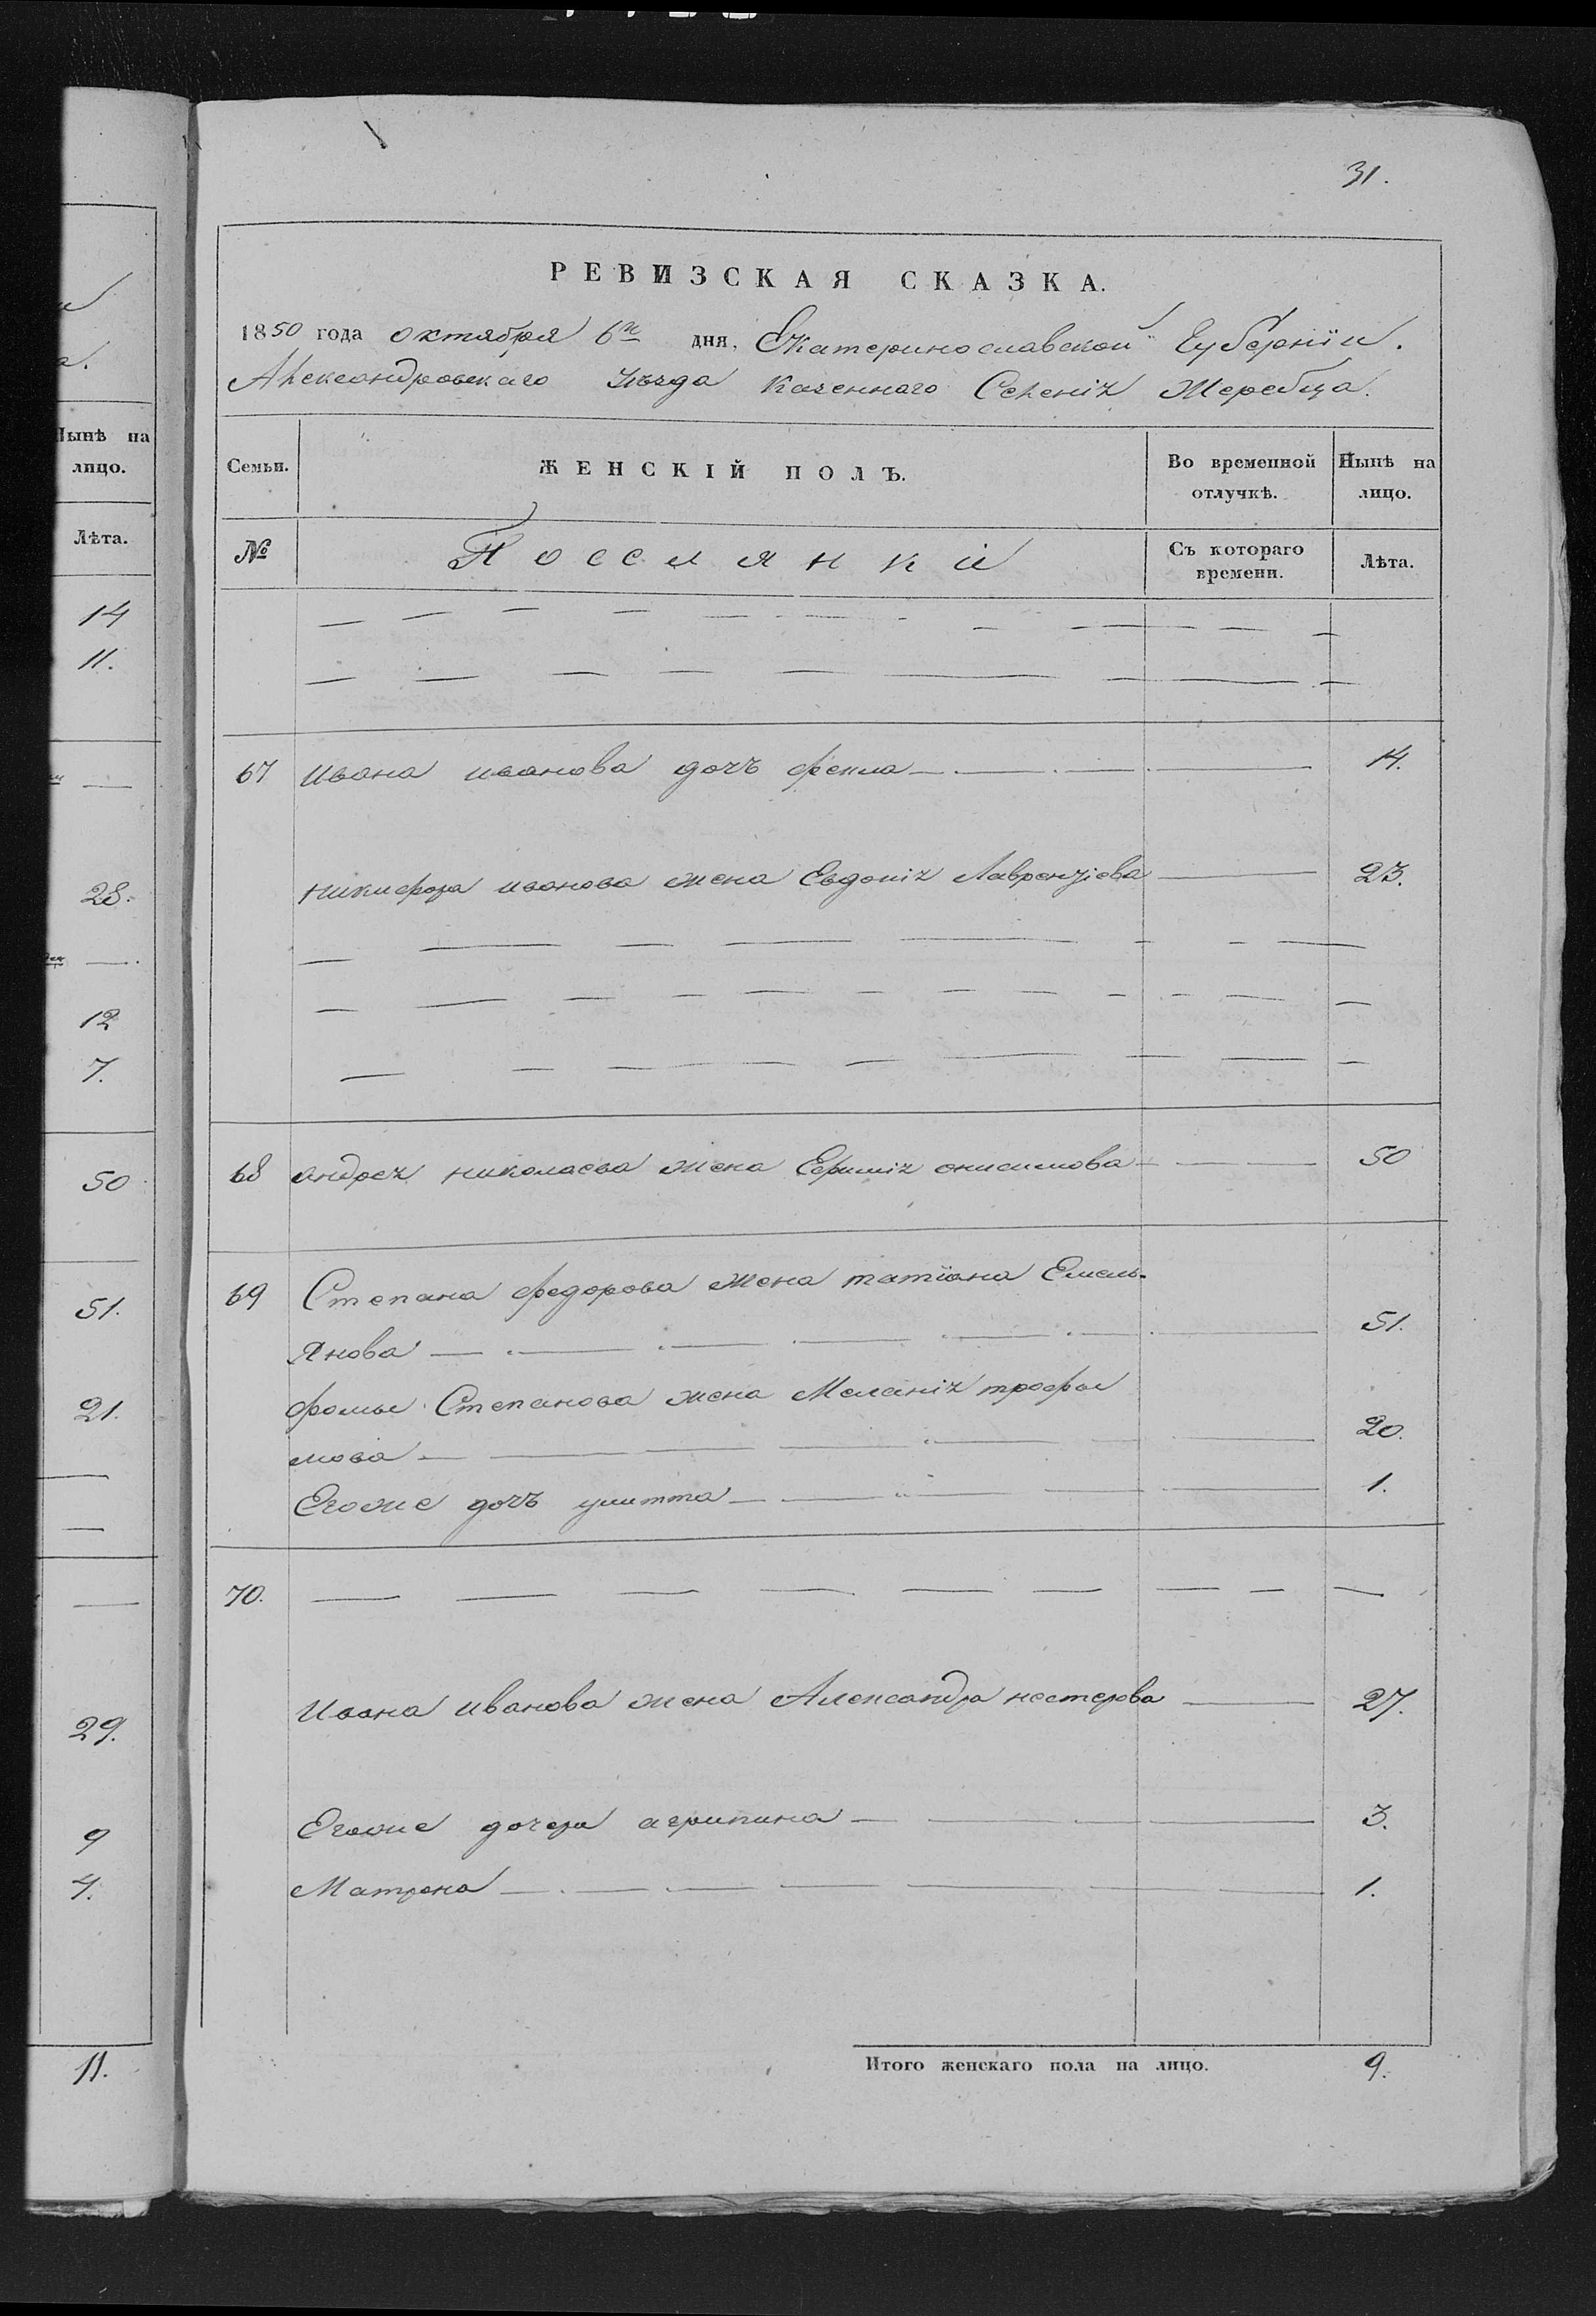 31.
РЕВИЗСКАЯ СКАЗКА.
1850 года октября 6го дня, Екатеринославской Губернiи.
Александровскаго Уѣзда Казеннаго Селенiя Жеребца.
Нынѣ на
лицо.
Лѣта.
14
11.
28.
12
7.
50
51.
21.
29.
9
4.
11.
Семьи.
ЖЕНСКIЙ ПОЛЪ.
Во временной
отлучкѣ.
Нынѣ на
лицо.
№
Поселянкi
Съ котораго
времени.
Лѣта.
67 Ивана иванова дочъ фекла 14.
никифора иванова жена Евдокiя Лаврентiева 23.
68 андрея николаева жена Ефимiя онисимова 50
69 Степана федорова жена татiана Емель-
янова 51.
фомы Степанова жена Меланiя трофи
мова 20.
Егоже дочъ улитта 1.
70.
Ивана иванова жена Александра нестерова 27.
Егоже дочери агрипина 3.
Матрона 1.
Итого женскаго пола на лицо. 9.